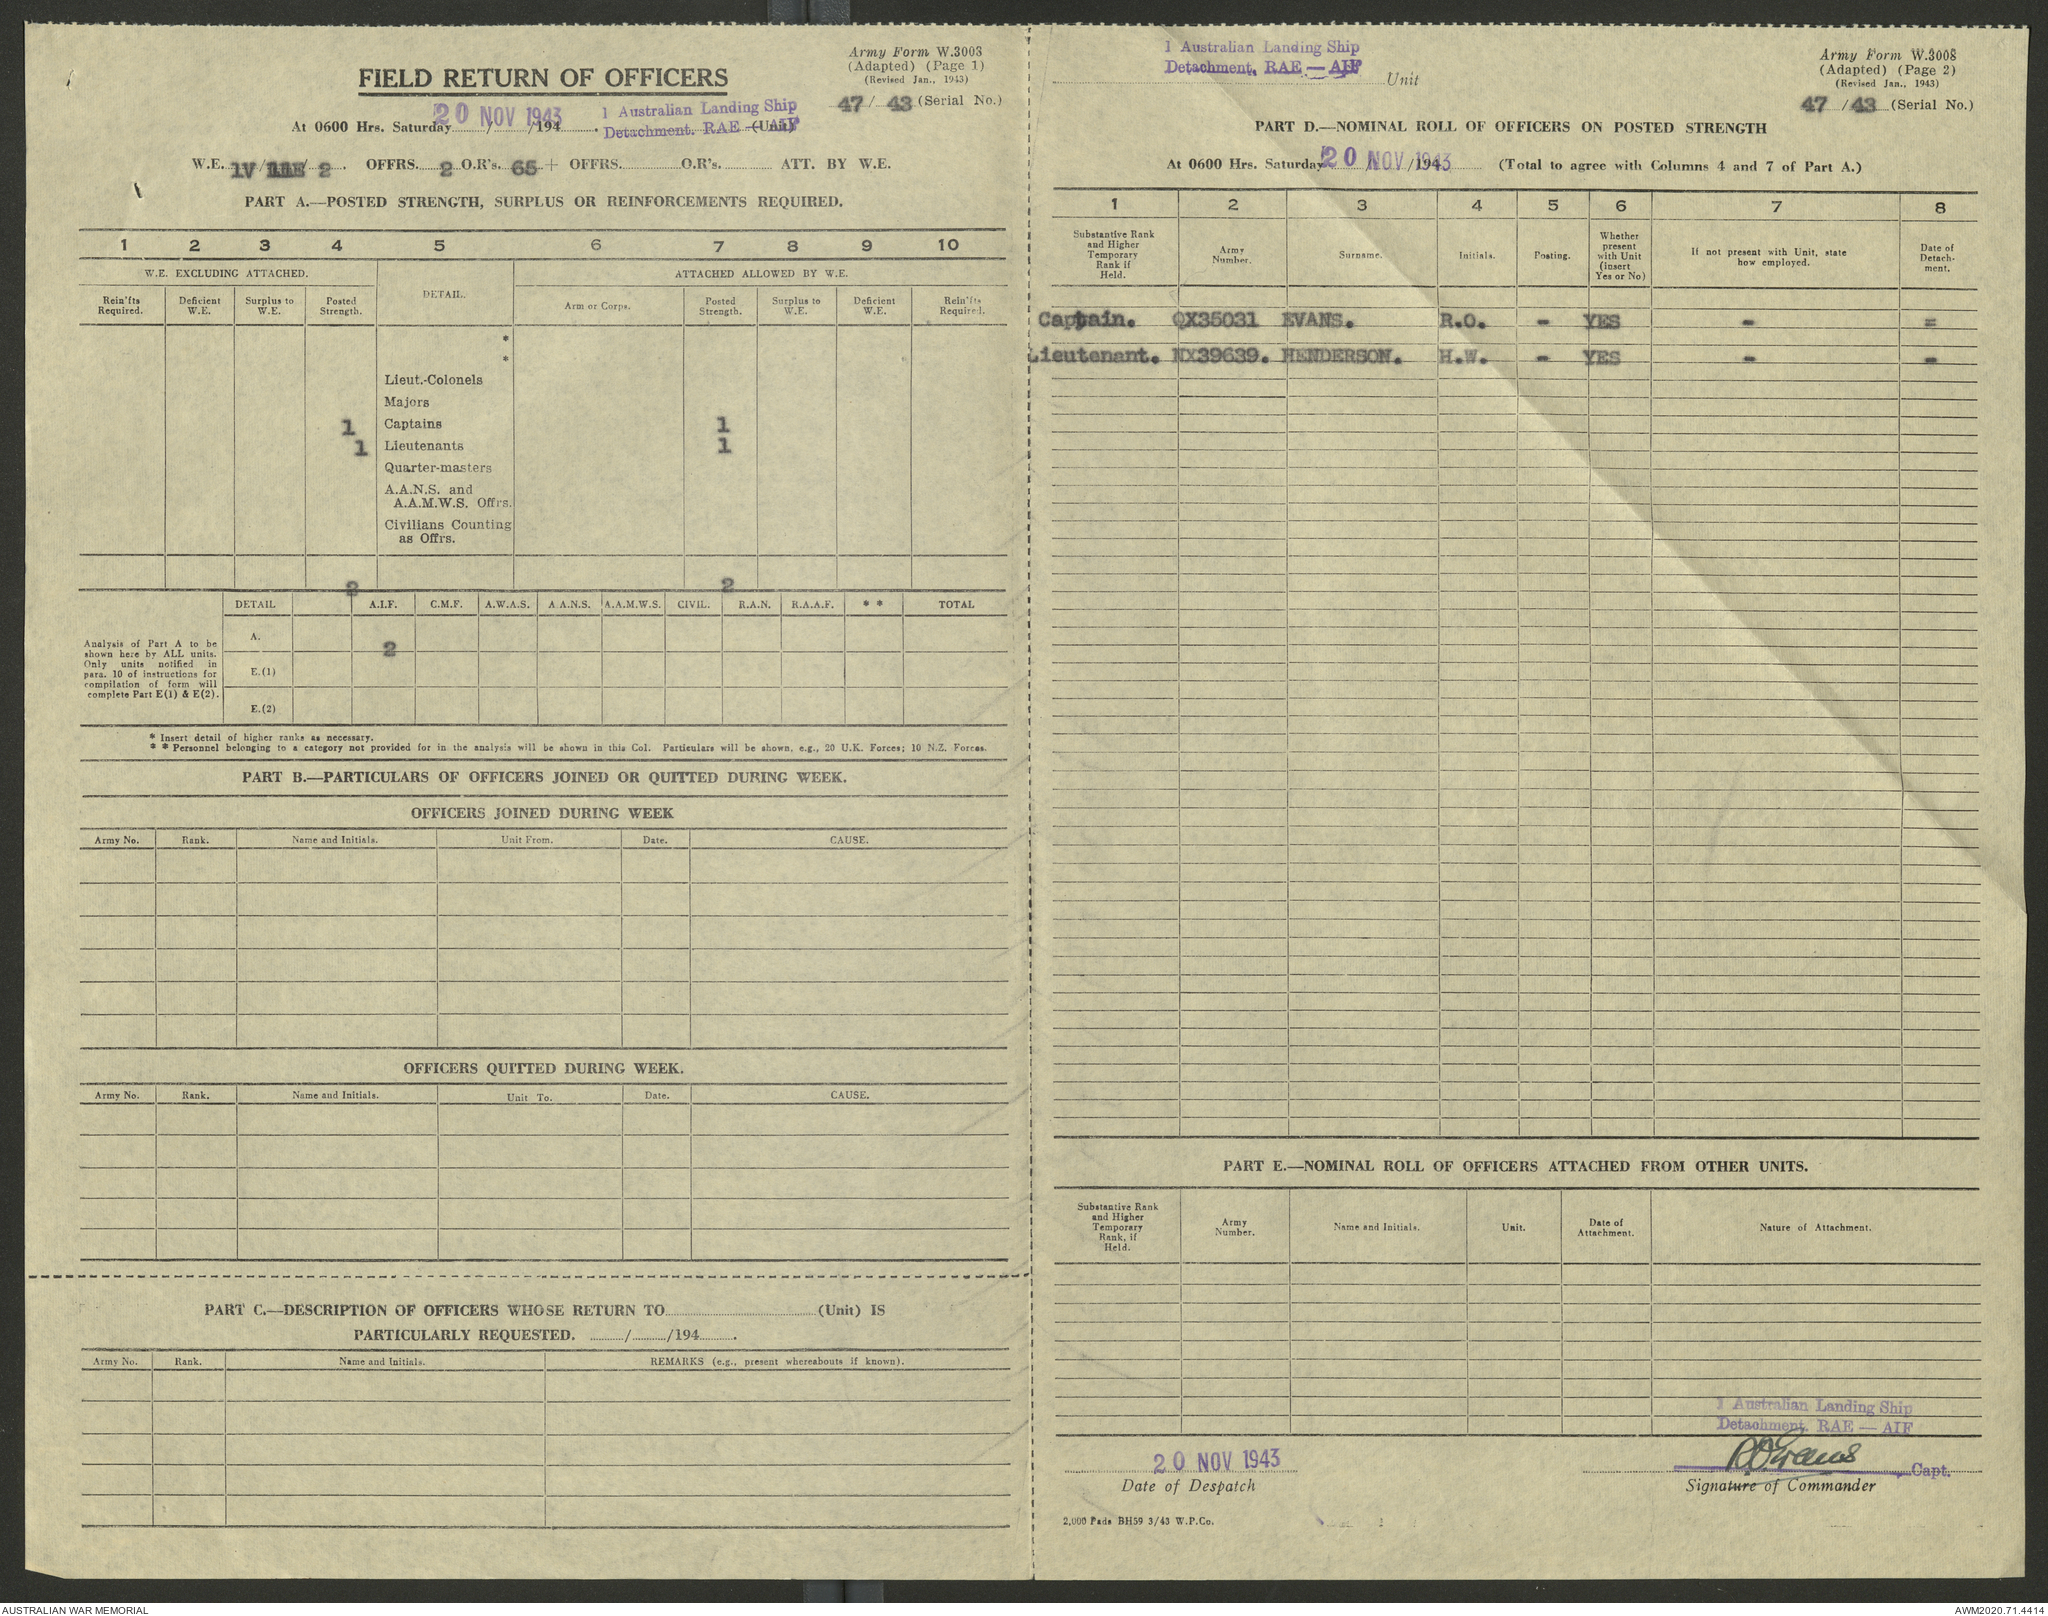 Army Form W.3008
(Adapted) (Page 1)
(Revised Jan., 1943)
FIELD RETURN OF OFFICERS
47 / 43 (Serial No.)
At 0600 Hrs. Saturday 20 NOV 1943 /194 . 1 Australian Landing Ship
Detachment. RAE — AIF (Unit)
W.E. 1V / 11E / 2 . OFFRS. 2 O.R's. 65 + OFFRS. O.R's. ATT. BY W.E.
PART A.—POSTED STRENGTH, SURPLUS OR REINFORCEMENTS REQUIRED.
1 2 3 4 5 6 7 8 9 10
W.E. EXCLUDING ATTACHED. DETAIL. ATTACHED ALLOWED BY W.E.
Rein'fts Required. Deficient W.E. Surplus to W.E. Posted Strength. Arm or Corps. Posted Strength. Surplus to W.E. Deficient W.E. Rein'fts Required.
*
*
Lieut.-Colonels
Majors
1 Captains 1
1 Lieutenants 1
Quarter-masters
A.A.N.S. and
A.A.M.W.S. Offrs.
Civilians Counting
as Offrs.
2 2
DETAIL A.I.F. C.M.F. A.W.A.S. A.A.N.S. A.A.M.W.S. CIVIL. R.A.N. R.A.A.F. * * TOTAL
Analysis of Part A to be
shown here by ALL units.
Only units notified in
para. 10 of instructions for
compilation of form will
complete Part E(1) & E(2).
A. 2
E.(1)
E.(2)
* Insert detail of higher ranks as necessary.
* * Personnel belonging to a category not provided for in the analysis will be shown in this Col. Particulars will be shown, e.g., 20 U.K. Forces; 10 N.Z. Forces.
PART B.—PARTICULARS OF OFFICERS JOINED OR QUITTED DURING WEEK.
OFFICERS JOINED DURING WEEK
Army No. Rank. Name and Initials. Unit From. Date. CAUSE.
OFFICERS QUITTED DURING WEEK.
Army No. Rank. Name and Initials. Unit To. Date. CAUSE.
PART C.—DESCRIPTION OF OFFICERS WHOSE RETURN TO (Unit) IS
PARTICULARLY REQUESTED. / /194 .
Army No. Rank. Name and Initials. REMARKS (e.g., present whereabouts if known).
1 Australian Landing Ship
Detachment, RAE — AIF Unit
Army Form W.3008
(Adapted) (Page 2)
(Revised Jan., 1943)
47 / 43 (Serial No.)
PART D.—NOMINAL ROLL OF OFFICERS ON POSTED STRENGTH
At 0600 Hrs. Saturday 20 NOV 1943 /194 (Total to agree with Columns 4 and 7 of Part A.)
1 2 3 4 5 6 7 8
Substantive Rank and Higher Temporary Rank if Held. Army Number. Surname. Initials. Posting. Whether present with Unit (insert Yes or No) If not present with Unit, state how employed. Date of Detach- ment.
Captain. QX35031 EVANS. R.O. - YES - =
Lieutenant. NX39639. HENDERSON. H.W. - YES - -
PART E.—NOMINAL ROLL OF OFFICERS ATTACHED FROM OTHER UNITS.
Substantive Rank and Higher Temporary Rank, if Held. Army Number. Name and Initials. Unit. Date of Attachment. Nature of Attachment.
1 Australian Landing Ship
Detachment, RAE — AIF
20 NOV 1943 ROEvans Capt.
Date of Despatch Signature of Commander
2,000 Pads BH59 3/43 W.P.Co.
AUSTRALIAN WAR MEMORIAL AWM2020.71.4414